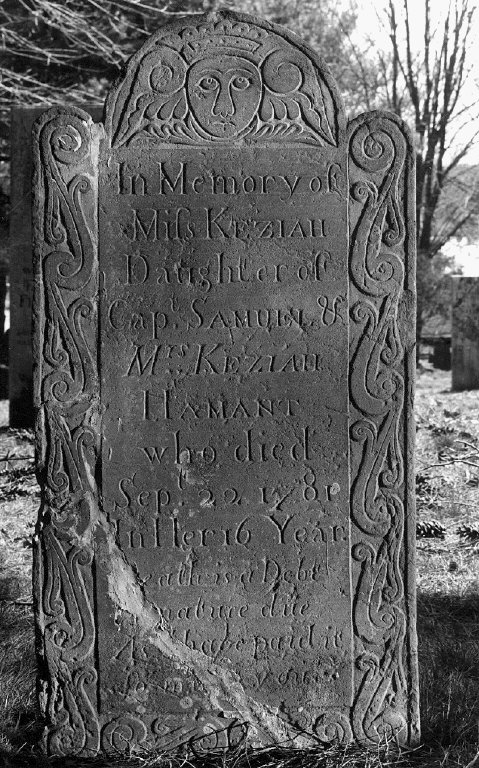 In Memory of
Miſs KEZIAH
Daughter of
Capt. SAMUEL &
Mrs. KEZIAH
HAMANT
who died
Sept. 22. 1781
In Her 16 Year.
Death is a Debt
nature due
As I have paid it
so must you